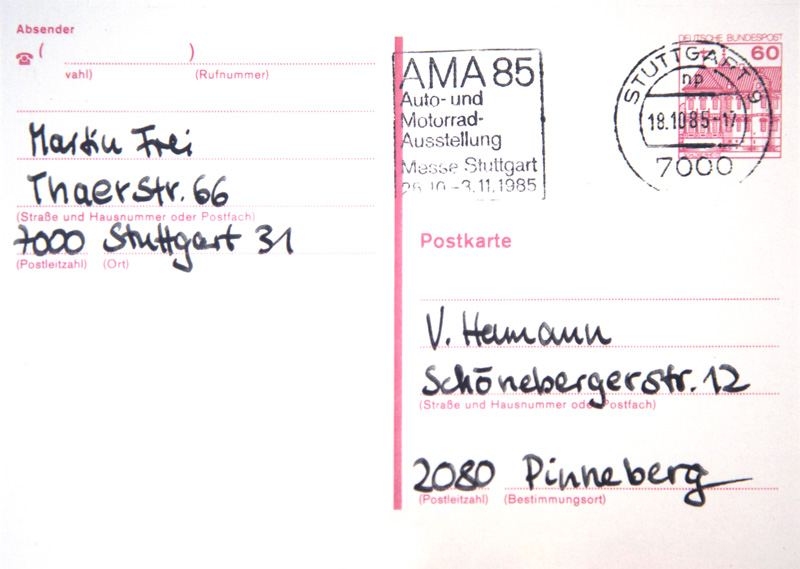 Absender
( )
vahl) (Rufnummer)
Martin Frei
Thaerstr. 66
(Straße und Hausnummer oder Postfach)
7000 Stuttgart 31
(Postleitzahl) (Ort)
AMA 85
Auto- und
Motorrad-
Ausstellung
Messe Stuttgart
26.10.-3.11.1985
DEUTSCHE BUNDESPOST
60
STUTTGART 9
np
18.10.85-17
7000
Postkarte
V. Hemann
Schönebergerstr. 12
(Straße und Hausnummer oder Postfach)
2080 Pinneberg
(Postleitzahl) (Bestimmungsort)